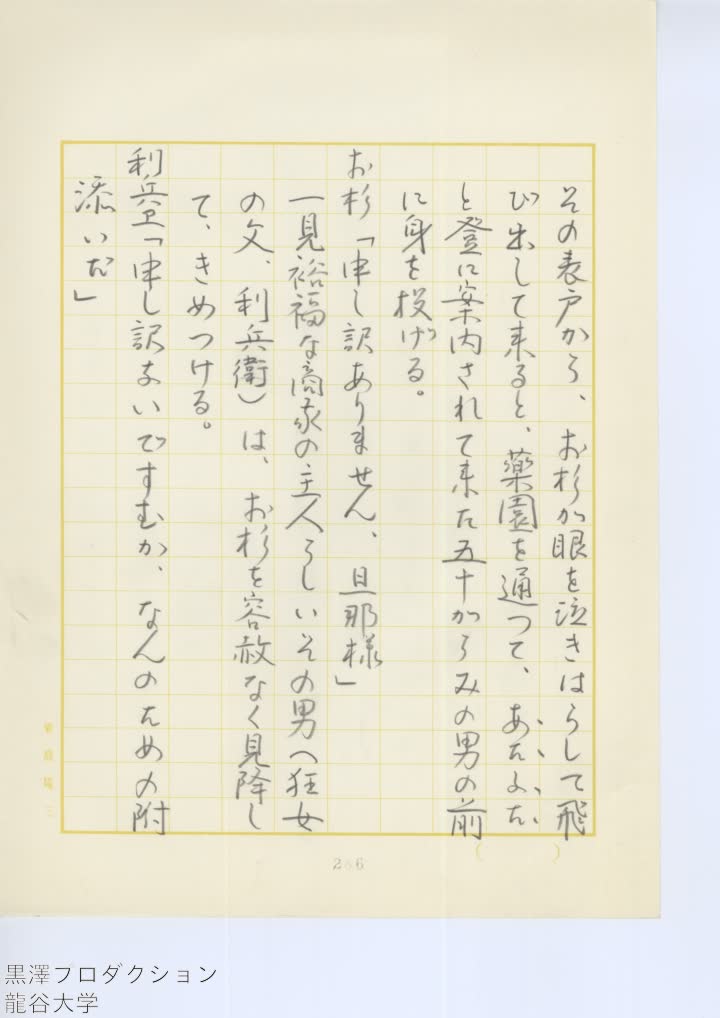 その表戸から、お杉が眼を泣きはらして飛
び出して来ると、薬園を通つて、あたふた
と登に案内されて来た五十がらみの男の前
に身を投げる。
お杉「申し訳ありません、旦那様」
一見裕福な商家の主人らしいその男（狂女
の父、利兵衛）は、お杉を容赦なく見降し
て、きめつける。
利兵卫「申し訳ないですむか、なんのための附
添いだ」
286
黒澤プロダクション
龍谷大学